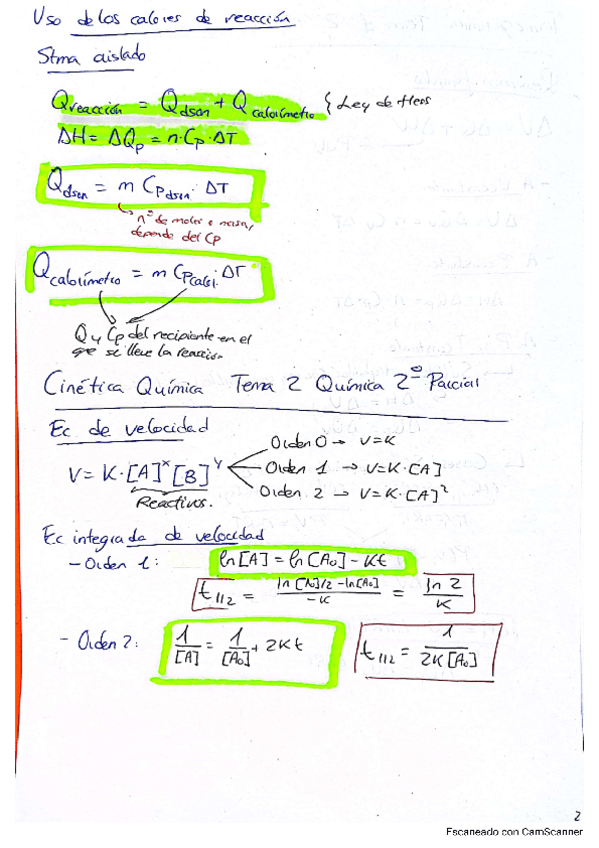 Uso de los calores de reacción
Stma aislado
Qreacción = Qdson + Qcalorímetro { Ley de Hess
ΔH = ΔQp = n·Cp·ΔT
Qdson = m Cpdson· ΔT
nº de moles o masa,
depende del Cp
Qcalorímetro = m Cpcalor.·ΔT
Q y Cp del recipiente en el
que se lleve la reacción
Cinética Química Tema 2 Química 2º Parcial
Ec de velocidad
V = K·[A]^x [B]^y
Reactivos.
Orden 0 → V=K
Orden 1 → V=K·[A]
Orden 2 → V=K·[A]²
Ec integrada de velocidad
- Orden 1: ln[A] = ln[A₀] - Kt
t1/2 = (ln [A₀]/2 - ln[A₀])/-K = ln 2/K
- Orden 2: 1/[A] = 1/[A₀] + 2Kt t1/2 = 1/2K[A₀]
2
Escaneado con CamScanner